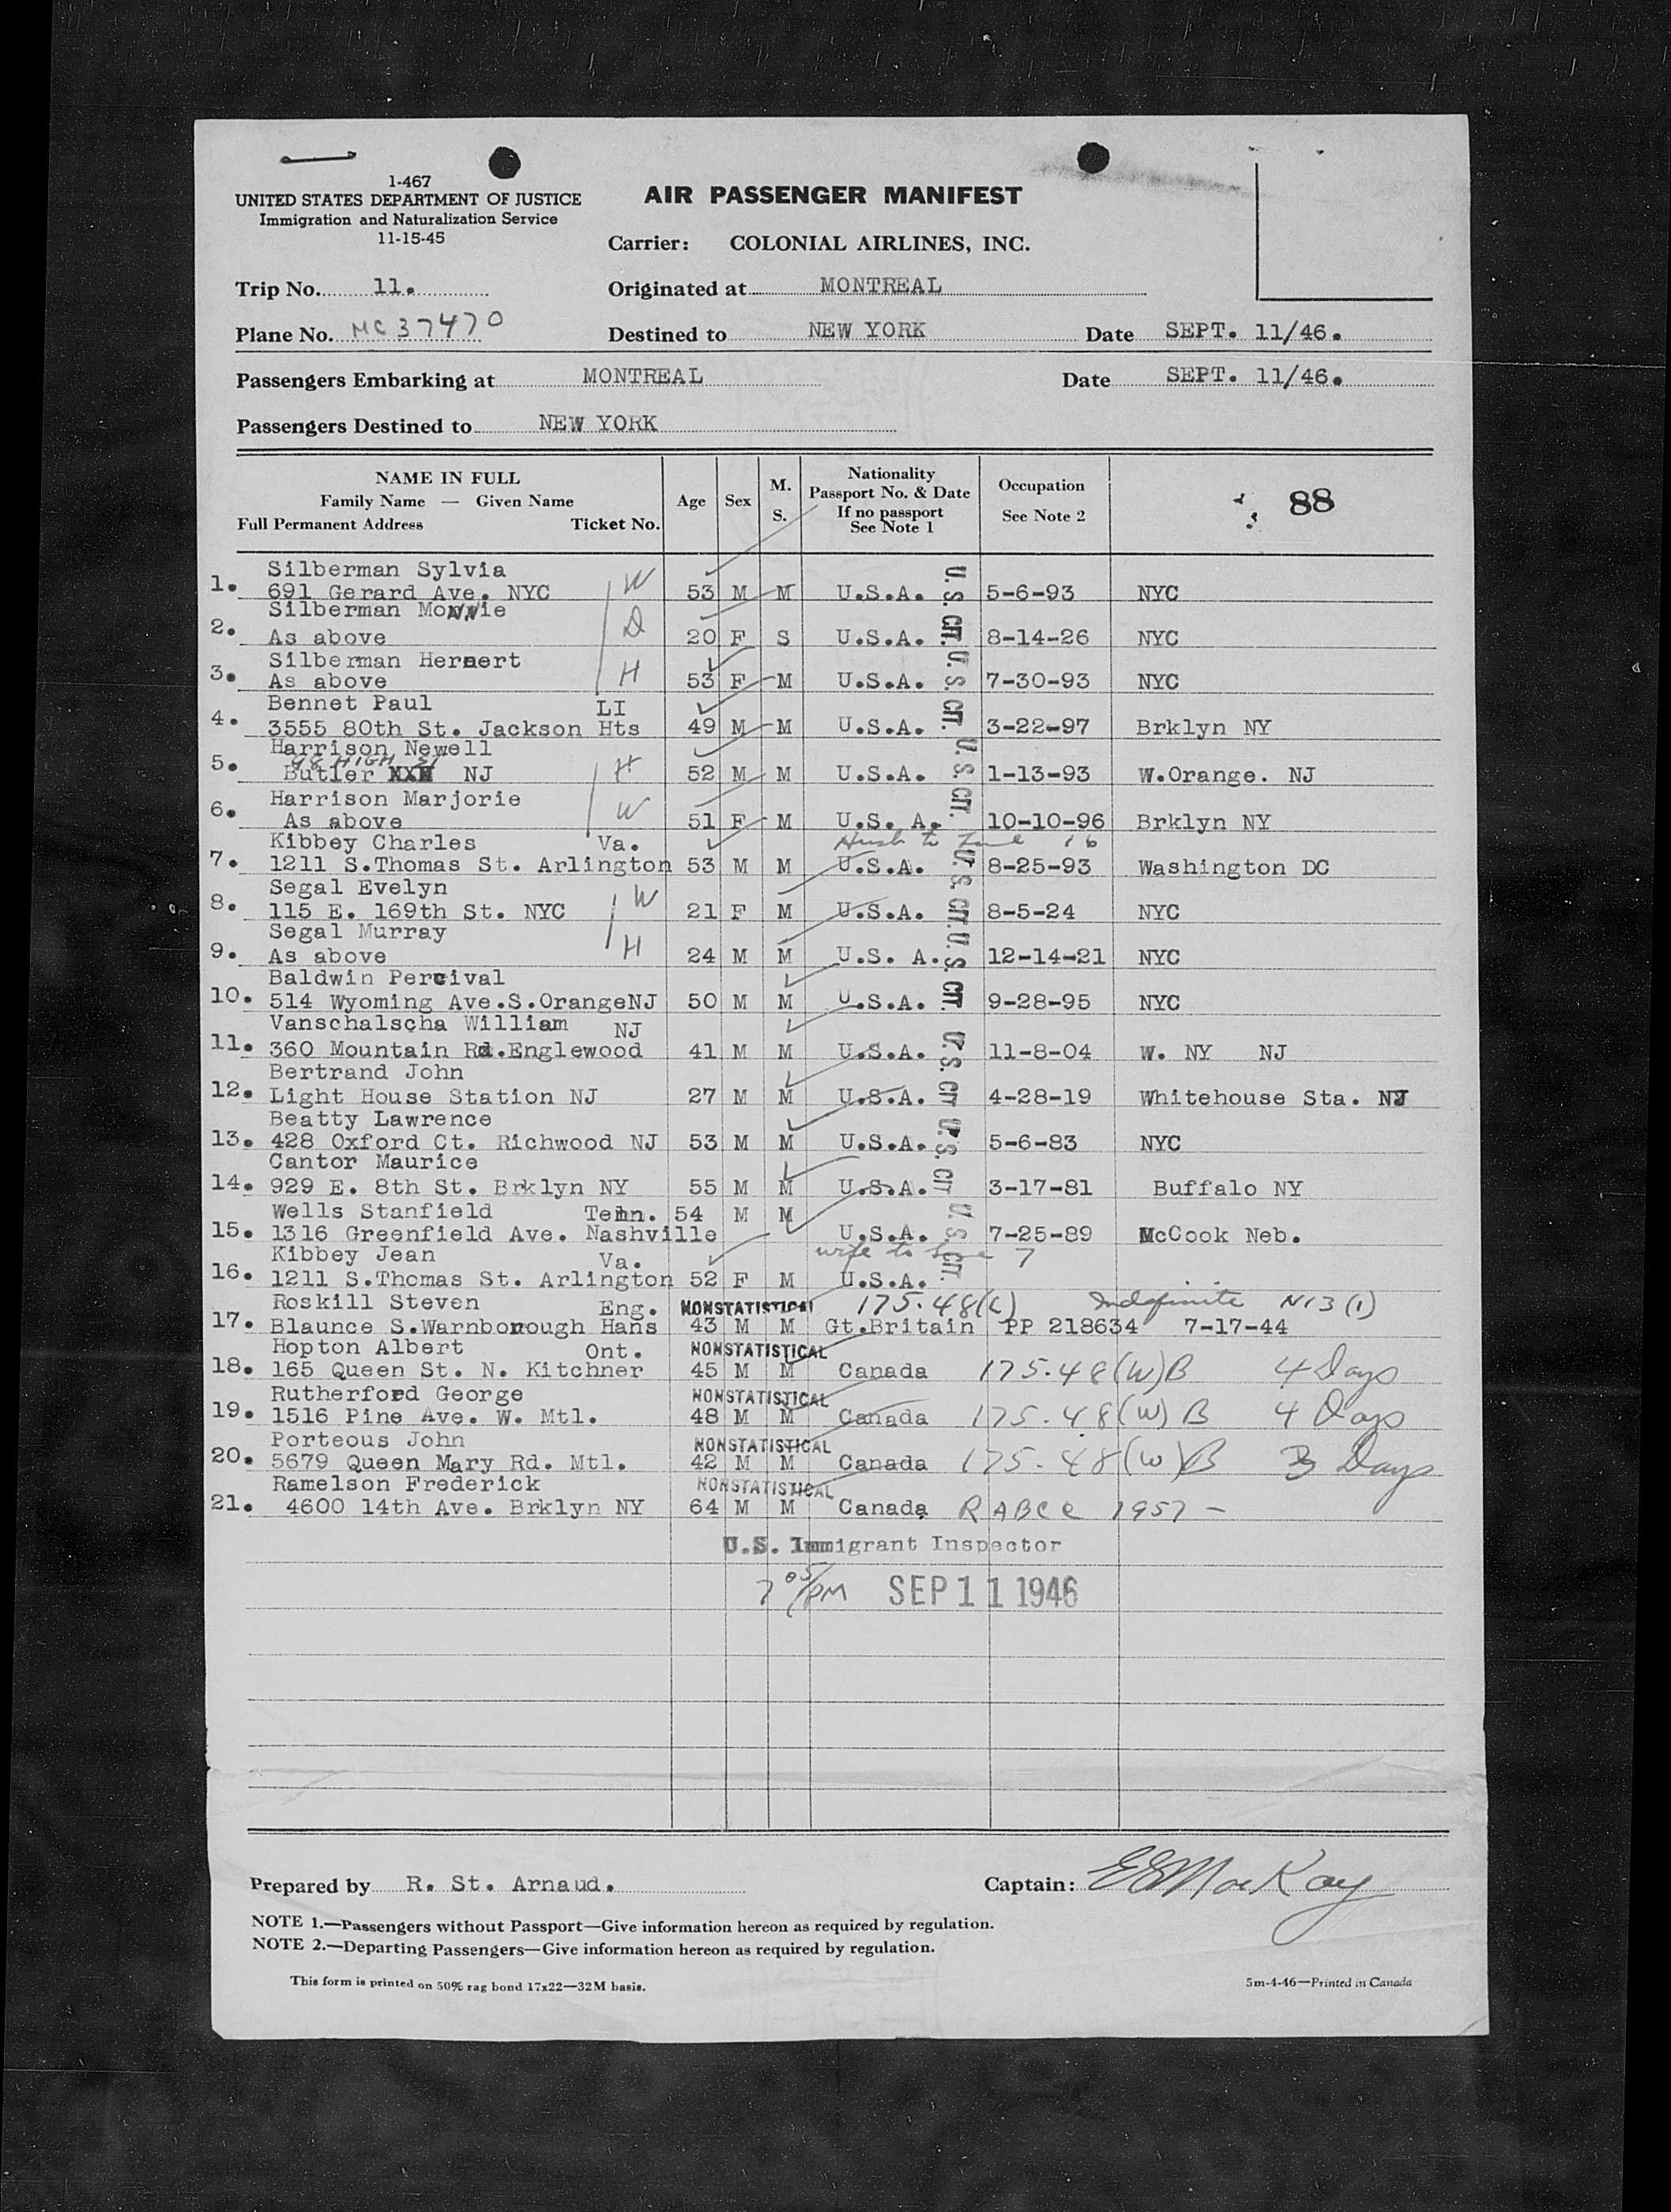 1-467
UNITED STATES DEPARTMENT OF JUSTICE
Immigration and Naturalization Service
11-15-45
AIR PASSENGER MANIFEST
Carrier: COLONIAL AIRLINES, INC.
Trip No. 11. Originated at MONTREAL
Plane No. MC 37470 Destined to NEW YORK Date SEPT. 11/46.
Passengers Embarking at MONTREAL Date SEPT. 11/46.
Passengers Destined to NEW YORK
NAME IN FULL
Family Name — Given Name
Full Permanent Address Ticket No.
Age Sex M. S.
Nationality
Passport No. & Date
If no passport
See Note 1
Occupation
See Note 2
88
Silberman Sylvia
1. 691 Gerard Ave. NYC W 53 M M U.S.A. U.S. CIT. 5-6-93 NYC
Silberman Monnie
2. As above D 20 F S U.S.A. 8-14-26 NYC
Silberman Hernert
3. As above H 53 F M U.S.A. U.S. CIT. 7-30-93 NYC
Bennet Paul LI
4. 3555 80th St. Jackson Hts 49 M M U.S.A. 3-22-97 Brklyn NY
Harrison Newell
48 HIGH St
5. Butler XXX NJ H 52 M M U.S.A. U.S. CIT. 1-13-93 W.Orange. NJ
Harrison Marjorie
6. As above W 51 F M U.S. A. 10-10-96 Brklyn NY
Kibbey Charles Va. Husb to Line 16
7. 1211 S.Thomas St. Arlington 53 M M U.S.A. U.S. CIT. 8-25-93 Washington DC
Segal Evelyn
8. 115 E. 169th St. NYC W 21 F M U.S.A. 8-5-24 NYC
Segal Murray
9. As above H 24 M M U.S. A. U.S. CIT. 12-14-21 NYC
Baldwin Percival
10. 514 Wyoming Ave.S.OrangeNJ 50 M M U.S.A. 9-28-95 NYC
Vanschalscha William NJ
11. 360 Mountain Rd.Englewood 41 M M U.S.A. U.S. CIT 11-8-04 W. NY NJ
Bertrand John
12. Light House Station NJ 27 M M U.S.A. 4-28-19 Whitehouse Sta. NJ
Beatty Lawrence
13. 428 Oxford Ct. Richwood NJ 53 M M U.S.A. U.S. CIT 5-6-83 NYC
Cantor Maurice
14. 929 E. 8th St. Brklyn NY 55 M M U.S.A. 3-17-81 Buffalo NY
Wells Stanfield Tenn. 54 M M
15. 1316 Greenfield Ave. Nashville U.S.A. U.S. CIT. 7-25-89 McCook Neb.
Kibbey Jean Va. wife to Line 7
16. 1211 S.Thomas St. Arlington 52 F M U.S.A.
Roskill Steven Eng. NONSTATISTICAL 175.48(c) Indefinite N13(1)
17. Blaunce S.Warnborough Hans 43 M M Gt.Britain PP 218634 7-17-44
Hopton Albert Ont. NONSTATISTICAL
18. 165 Queen St. N. Kitchner 45 M M Canada 175.48(W)B 4 Days
Rutherford George NONSTATISTICAL
19. 1516 Pine Ave. W. Mtl. 48 M M Canada 175.48(W) B 4 Days
Porteous John NONSTATISTICAL
20. 5679 Queen Mary Rd. Mtl. 42 M M Canada 175.48(W)B 3 Days
Ramelson Frederick NONSTATISTICAL
21. 4600 14th Ave. Brklyn NY 64 M M Canada 1957 -
U.S. Immigrant Inspector
7 05/PM SEP 11 1946
Prepared by R. St. Arnaud. Captain: E S MacKay
NOTE 1.—Passengers without Passport—Give information hereon as required by regulation.
NOTE 2.—Departing Passengers—Give information hereon as required by regulation.
This form is printed on 50% rag bond 17x22—32M basis. 5m-4-46—Printed in Canada